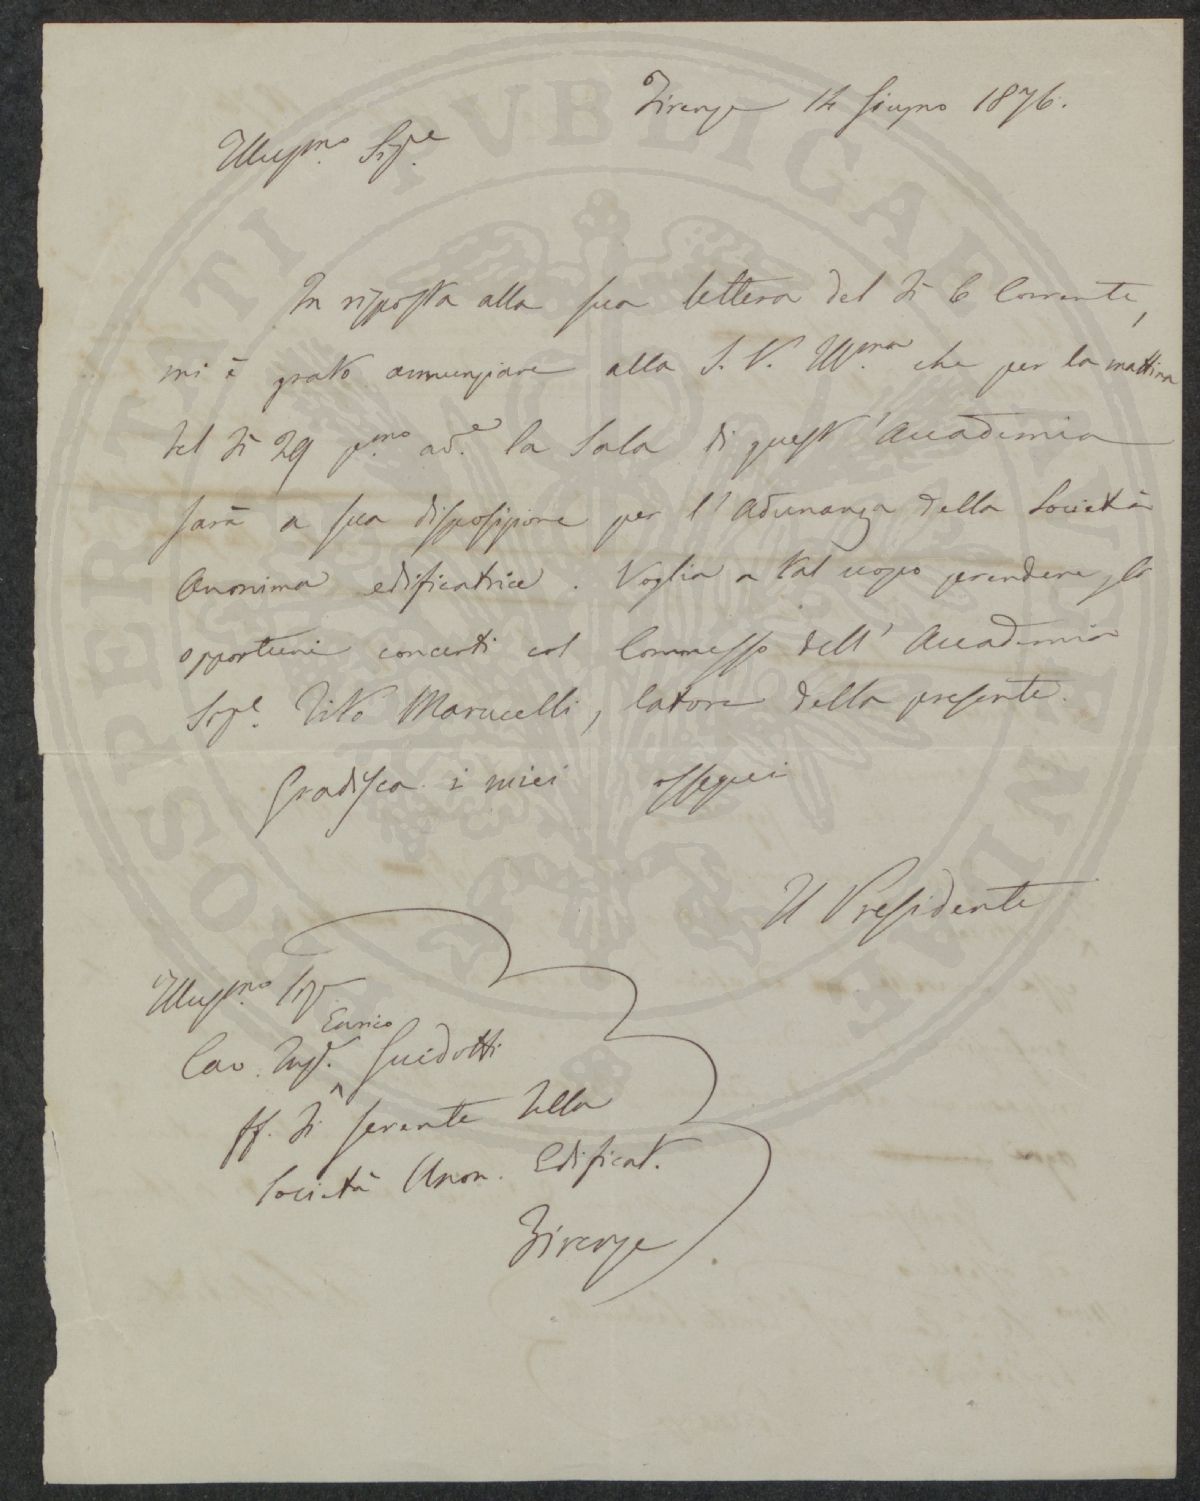 Firenze 14 Giugno 1876.
Illus<sup>mo</sup>. Sig<sup>re</sup>.
In risposta alla sua lettera del dì 6 Corrente,
mi è grato annunziare alla S. V. Ill<sup>ma</sup>. che per la mattina
del dì 29 p<sup>mo</sup>. av<sup>e</sup>. la Sala di quest'Accademia
sarà a sua disposizione per l'Adunanza della Società
Anonima edificatrice. Voglia a tal uopo prendere gli
opportuni concerti col Commesso dell'Accademia
Sig<sup>e</sup>. Tito Marucelli, latore della presente.
Gradisca i miei ossequi
Il Presidente
Illus<sup>mo</sup>. Sig<sup>re</sup>
Enrico
Cav. Ing<sup>e</sup>. Guidotti
ff. di Gerente della
Società Anon. Edificat.
Firenze
PROSPERITATI PVBLICAE AVGENDAE